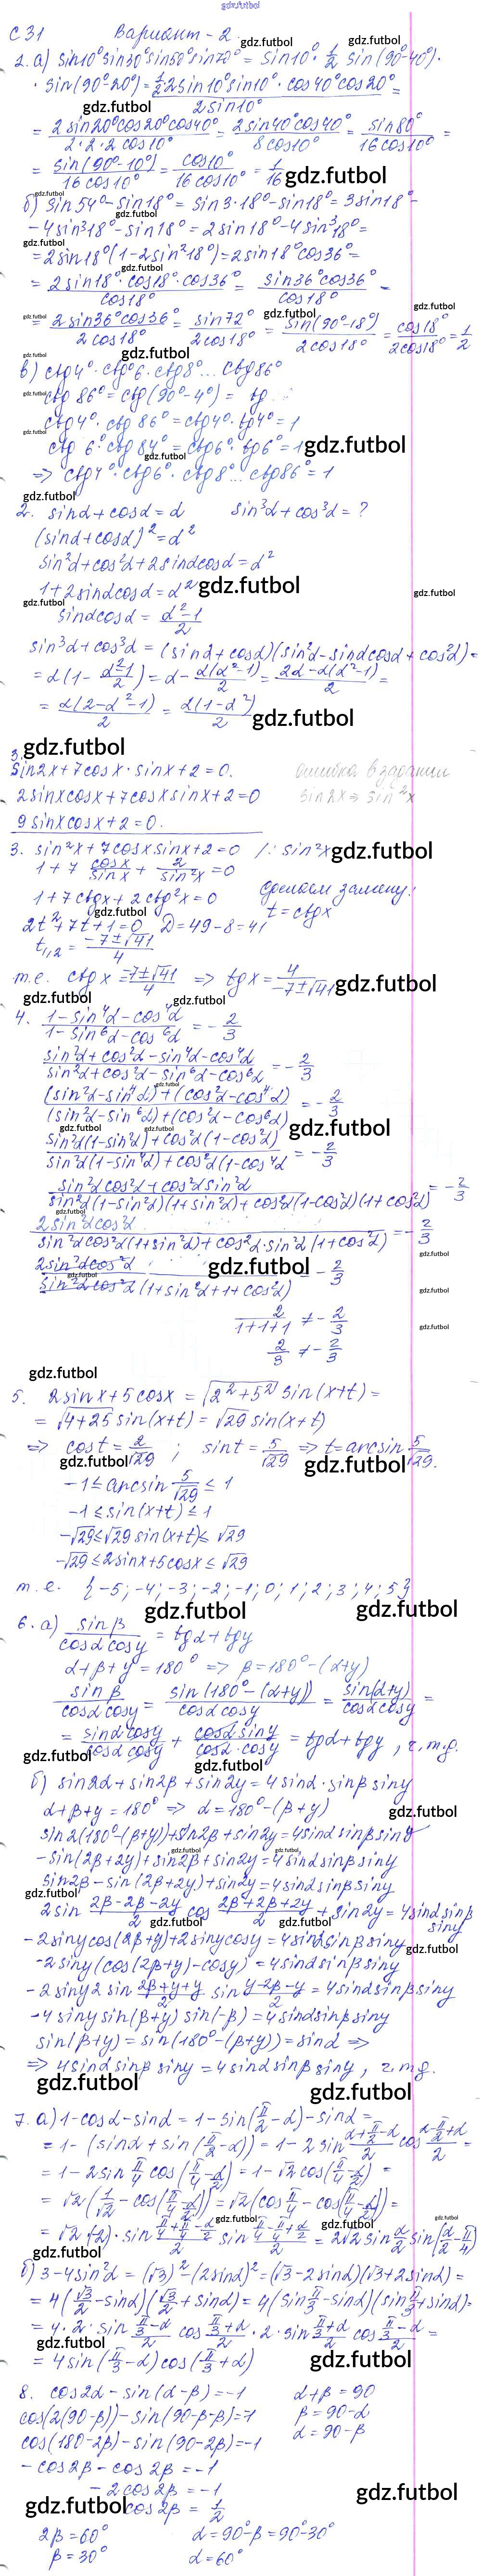 gdz.futbol
С 31 Вариант - 2.
2. а) sin10° sin30° sin50° sin70° = sin10° · 1/2 sin(90°-40°) ·
· sin(90°-20°) = 1/2 2sin10° sin10° · cos40° cos20° / 2sin10° =
= 2sin20°cos20°cos40° / 2·2·2 cos10° = 2sin40°cos40° / 8cos10° = sin80° / 16cos10° =
= sin(90°-10°) / 16cos10° = cos10° / 16cos10° = 1/16
б) sin54° - sin18° = sin3·18° - sin18° = 3sin18° -
- 4sin³18° - sin18° = 2sin18° - 4sin³18° =
= 2sin18°(1-2sin²18°) = 2sin18°cos36° =
= 2sin18°·cos18°·cos36° / cos18° = sin36°cos36° / cos18° =
= 2sin36°cos36° / 2cos18° = sin72° / 2cos18° = sin(90°-18°) / 2cos18° = cos18° / 2cos18° = 1/2
в) ctg4°·ctg6·ctg8°... ctg86°
ctg86° = ctg(90°-4°) = tg
ctg4°·ctg86° = ctg4°·tg4° = 1
ctg6°·ctg84° = ctg6°·tg6° = 1
=> ctg4°·ctg6°·ctg8°... ctg86° = 1
2. sind + cosd = d sin³d + cos³d = ?
(sind + cosd)² = d²
sin²d + cos²d + 2sindcosd = d²
1 + 2sindcosd = d²
sindcosd = d²-1 / 2
sin³d + cos³d = (sind + cosd)(sin²d - sindcosd + cos²d) =
= d(1 - d²-1 / 2) = d - d(d²-1) / 2 = 2d - d(d²-1) / 2 =
= d(2-d²-1) / 2 = d(1-d²) / 2
3.
sin2x + 7cosx·sinx + 2 = 0. ошибка в задании
2sinxcosx + 7cosxsinx + 2 = 0 sin2x => sin²x
9sinxcosx + 2 = 0.
3. sin²x + 7cosxsinx + 2 = 0 /: sin²x
1 + 7 cosx/sinx + 2/sin²x = 0
1 + 7ctgx + 2ctg²x = 0 сделаем замену:
2t² + 7t + 1 = 0 D = 49 - 8 = 41 t = ctgx
t₁,₂ = -7±√41 / 4
т.е. ctgx = -7±√41 / 4 => tgx = 4 / -7±√41
4. 1-sin⁴d-cos⁴d / 1-sin⁶d-cos⁶d = -2/3
sin²d+cos²d-sin⁴d-cos⁴d / sin²d+cos²d-sin⁶d-cos⁶d = -2/3
(sin²d-sin⁴d)+(cos²d-cos⁴d) / (sin²d-sin⁶d)+(cos²d-cos⁶d) = -2/3
sin²d(1-sin²d)+cos²d(1-cos²d) / sin²d(1-sin⁴d)+cos²d(1-cos⁴d) = -2/3
sin²dcos²d+cos²dsin²d / sin²d(1-sin²d)(1+sin²d)+cos²d(1-cos²d)(1+cos²d) = -2/3
2sin²dcos²d / sin²dcos²d(1+sin²d)+cos²d·sin²d(1+cos²d) = -2/3
2sin²dcos²d / sin²dcos²d(1+sin²d+1+cos²d) = -2/3
2 / 1+1+1 ≠ -2/3
2/3 ≠ -2/3
5. 2sinx + 5cosx = √2²+5² sin(x+t) =
= √4+25 sin(x+t) = √29 sin(x+t)
=> cost = 2/√29 ; sint = 5/√29 => t = arcsin 5/√29.
-1 ≤ arcsin 5/√29 ≤ 1
-1 ≤ sin(x+t) ≤ 1
-√29 ≤ √29 sin(x+t) ≤ √29
-√29 ≤ 2sinx + 5cosx ≤ √29
т.е. {-5; -4; -3; -2; -1; 0; 1; 2; 3; 4; 5}
6. а) sinβ / cosdcosy = tgd + tgy
d+β+y = 180° => β = 180° - (d+y)
sinβ / cosdcosy = sin(180°-(d+y)) / cosdcosy = sin(d+y) / cosdcosy =
= sindcosy / cosdcosy + cosdsiny / cosd·cosy = tgd + tgy, ч.т.д.
б) sin2d + sin2β + sin2y = 4sind·sinβsiny
d+β+y = 180° => d = 180° - (β+y)
sin2(180°-(β+y)) + sin2β + sin2y = 4sindsinβsiny
-sin(2β+2y) + sin2β + sin2y = 4sindsinβsiny
sin2β - sin(2β+2y) + sin2y = 4sindsinβsiny
2sin 2β-2β-2y / 2 cos 2β+2β+2y / 2 + sin2y = 4sindsinβsiny
-2sinycos(2β+y) + 2sinycosy = 4sindsinβsiny
-2siny(cos(2β+y) - cosy) = 4sindsinβsiny
-2siny2sin 2β+y+y / 2 sin y-2β-y / 2 = 4sindsinβsiny
-4sinysin(β+y)sin(-β) = 4sindsinβsiny
sin(β+y) = sin(180°-(β+y)) = sind =>
=> 4sindsinβsiny = 4sindsinβsiny, ч.т.д.
7. а) 1-cosd-sind = 1-sin(π/2-d)-sind =
= 1-(sind+sin(π/2-d)) = 1-2sin d+π/2-d / 2 cos d-π/2+d / 2 =
= 1-2sin π/4 cos(π/4-d/2) = 1-√2cos(π/4-d/2) =
= √2(1/√2-cos(π/4-d/2)) = √2(cos π/4-cos(π/4-d/2)) =
= √2·(-2)·sin π/4+π/4-d/2 / 2 sin π/4-π/4+d/2 / 2 = 2√2sin d/2 sin(d/2-π/4)
б) 3-4sin²d = (√3)²-(2sind)² = (√3-2sind)(√3+2sind) =
= 4(√3/2-sind)(√3/2+sind) = 4(sin π/3-sind)(sin π/3+sind) =
= 4·2·sin π/3-d / 2 cos π/3+d / 2 · 2·sin π/3+d / 2 cos π/3-d / 2 =
= 4sin(π/3-d)cos(π/3+d)
8. cos2d - sin(d-β) = -1 d+β = 90
cos(2(90-β)) - sin(90-β-β) = -1 β = 90-d
cos(180-2β) - sin(90-2β) = -1 d = 90-β
-cos2β - cos2β = -1
-2cos2β = -1
cos2β = 1/2
2β = 60° d = 90°-β = 90°-30°
β = 30° d = 60°